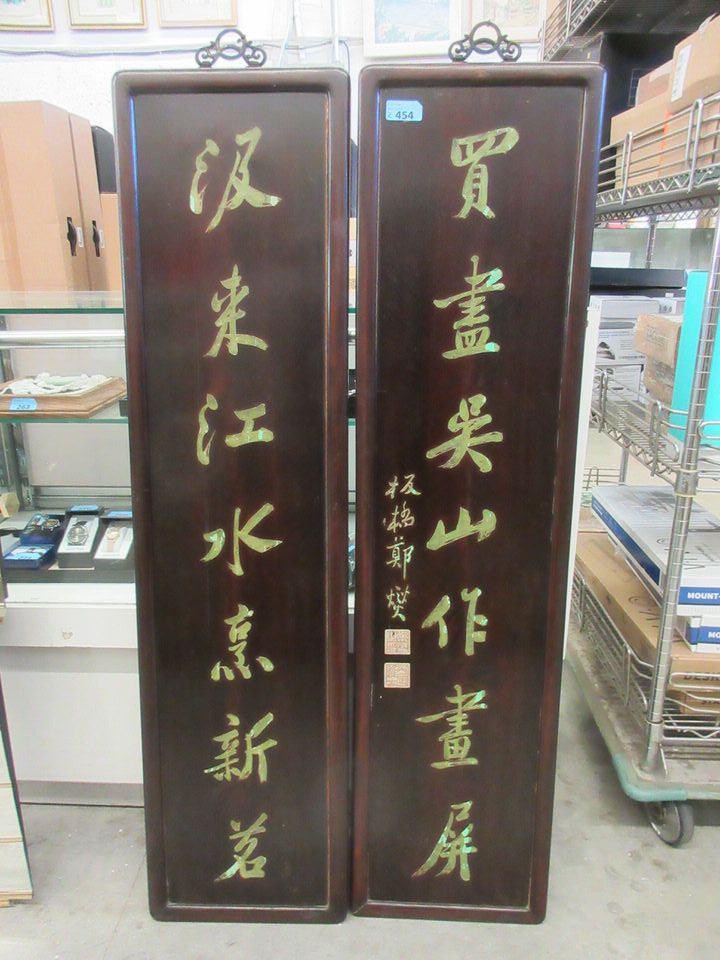 汲来江水烹新茗
買盡吳山作畫屏
板橋鄭燮
454
263
MOUNT-
MOUNT-